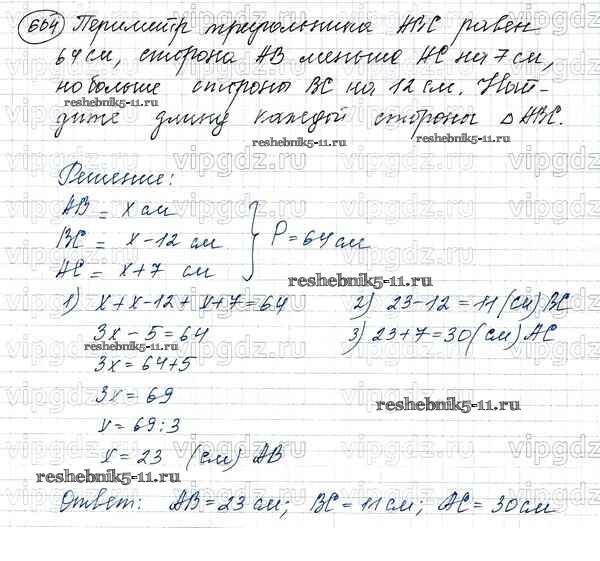 664 Периметр треугольника ABC равен
64 см, сторона AB меньше AC на 7 см,
но больше стороны BC на 12 см. Най-
reshebnik5-11.ru
дите длину каждой стороны △ ABC.
reshebnik5-11.ru
Решение:
AB = x см
BC = x-12 см
AC = x+7 см
P = 64 см
reshebnik5-11.ru
1) x+x-12+x+7=64
2) 23-12=11 (см) BC
3x-5=64
3) 23+7=30 (см) AC
reshebnik5-11.ru
3x=64+5
3x=69
reshebnik5-11.ru
x=69:3
x=23 (см) AB
reshebnik5-11.ru
Ответ: AB=23 см; BC=11 см; AC=30 см
vipgdz.ru